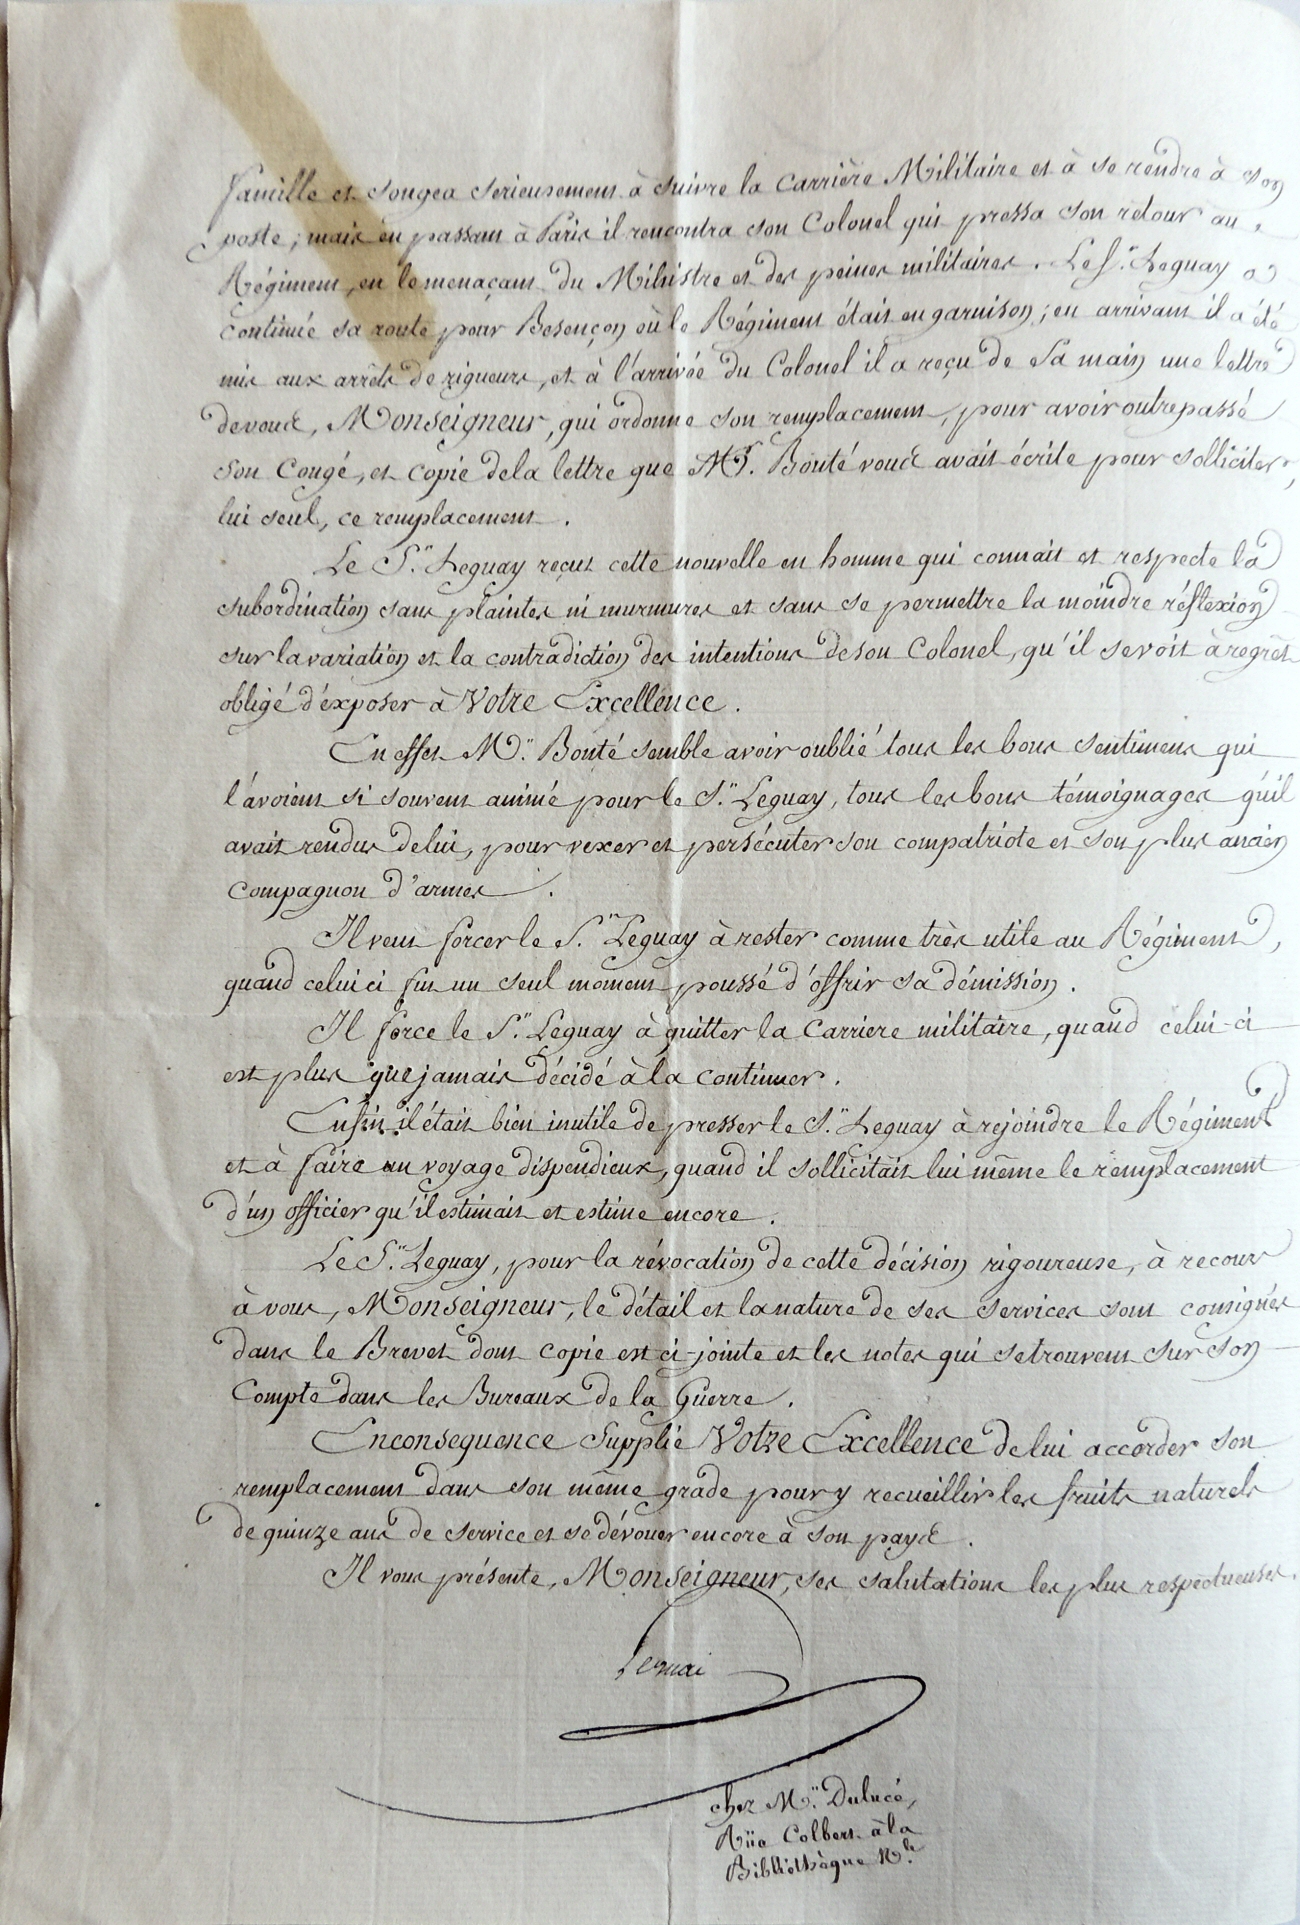 famille et songea serieusement à suivre la Carrière Militaire et à se rendre à son
poste ; mais en passant à Paris il rencontra son Colonel qui pressa son retour au
Régiment, en le menaçant du Ministre et des peines militaires. Le S.r Leguay a
continué sa route pour Besençon où le Régiment était en garnison ; en arrivant il a été
mis aux arrêts de rigueurs, et à l'arrivée du Colonel il a reçu de sa main une lettre
de vous, Monseigneur, qui ordonne son remplacement, pour avoir outrepassé
son Congé, et copie de la lettre que Mr. Bouté vous avait écrite pour solliciter,
lui seul, ce remplacement.
Le S.r Leguay reçut cette nouvelle en homme qui connait et respecte la
subordination sans plaintes ni murmures et sans se permettre la moindre réflexion
sur la variation et la contradiction des intentions de son Colonel, qu'il se voit à regrèt
obligé d'éxposer à Votre Excellence.
En effet M.r Bouté semble avoir oublié tous les bons sentimens qui
l'avoient si souvent animé pour le S.r Leguay, tous les bons témoignages qu'il
avait rendus de lui, pour vexer et persécuter son compatriote et son plus ancien
Compagnon d'armes.
Il veut forcer le S.r Leguay à rester comme très utile au Régiment,
quand celui ci fut un seul moment poussé d'offrir sa démission.
Il force le S.r Leguay à quitter la Carriere militaire, quand celui-ci
est plus que jamais décidé à la continuer.
Enfin il était bien inutile de presser le S.r Leguay à rejoindre le Régiment
et à faire un voyage dispendieux, quand il sollicitait lui même le remplacement
d'un officier qu'il estimait et estime encore.
Le S.r Leguay, pour la révocation de cette décision rigoureuse, à recours
à vous, Monseigneur, le détail et la nature de ses services sont consignés
dans le Brevet dont copie est ci-jointe et les notes qui se trouvent sur son
Compte dans les Bureaux de la Guerre.
En consequence Supplie Votre Excellence de lui accorder son
remplacement dans son même grade pour y recueillir les fruits naturels
de quinze ans de service et se dévouer encore à son pays.
Il vous présente, Monseigneur, ses salutations les plus respectueuses.
chez M.r Dulucé,
Rüe Colbert à la
Bibliothèque N.le